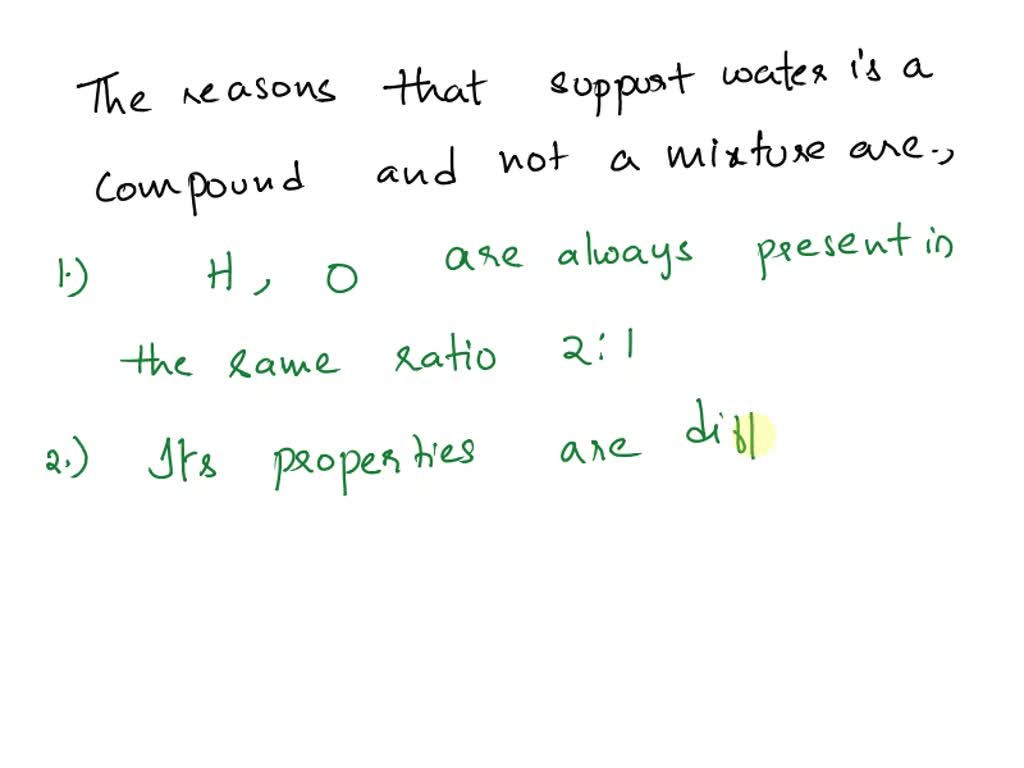 The reasons that support water is a
compound and not a mixture are.,
1.) H, O are always present in
the same ratio 2:1
2.) Its properties are diff